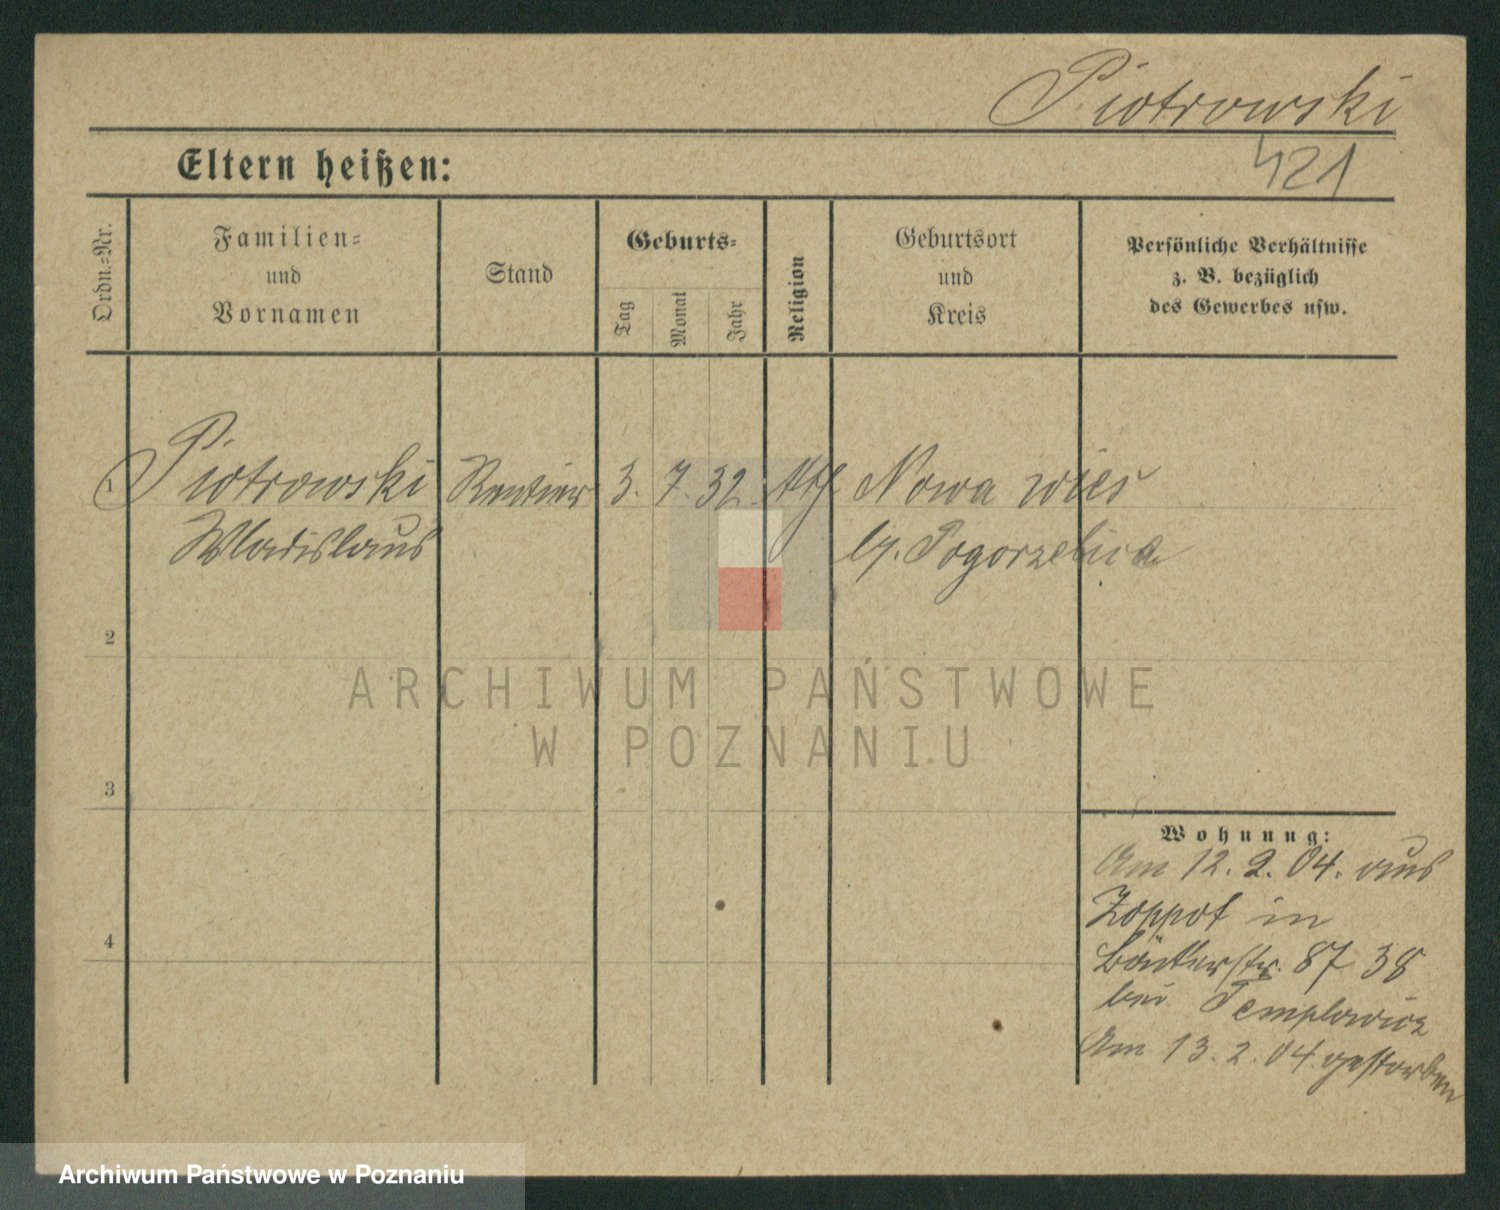 Piotrowski
Eltern heißen:
421
Ordn.-Nr.
Familien-
und
Vornamen
Stand
Geburts-
Tag
Monat
Jahr
Religion
Geburtsort
und
Kreis
Persönliche Verhältnisse
z. B. bezüglich
des Gewerbes usw.
1 Piotrowski Rentier 3. 7. 32. kth Nowa wies
Wladislaus b/. Pogorzelica
2
3
4
Wohnung:
Am 12. 2. 04. aus
Zoppot in
Bäckerstr. 87 38
bei
Am 13. 2. 04. gestorben
ARCHIWUM PAŃSTWOWE
W POZNANIU
Archiwum Państwowe w Poznaniu